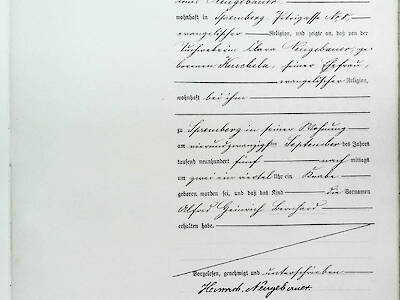 Neugebauer,
wohnhaft in Spremberg, Petrigasse No 8,
evangelischer Religion, und zeigte an, daß von der
Tuchweberin Clara Neugebauer, ge-
borenen Kuschela, seiner Ehefrau,
evangelischer Religion,
wohnhaft bei ihm
zu Spremberg in seiner Wohnung
am vierundzwanzigsten September des Jahres
tausend neunhundert fünf nach mittags
um zwei ein viertel Uhr ein Knabe
geboren worden sei, und daß das Kind die Vornamen
Alfred Heinrich Bernhard
erhalten habe.
Vorgelesen, genehmigt und unterschrieben
Heinrich Neugebauer.